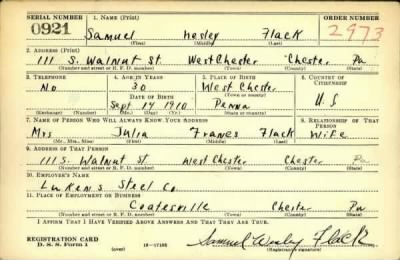 SERIAL NUMBER 1. NAME (Print) ORDER NUMBER
0921 Samuel Wesley Flack 2973
(First) (Middle) (Last)
2. ADDRESS (Print)
111 S. Walnut St. West Chester Chester Pa
(Number and street or R. F. D. number) (Town) (County) (State)
3. TELEPHONE 4. AGE IN YEARS 5. PLACE OF BIRTH 6. COUNTRY OF CITIZENSHIP
No 30 West Chester
DATE OF BIRTH (Town or county)
Sept 14 1910 Penna U S
(Exchange) (Number) (Mo.) (Day) (Yr.) (State or country)
7. NAME OF PERSON WHO WILL ALWAYS KNOW YOUR ADDRESS 8. RELATIONSHIP OF THAT PERSON
Mrs Julia Franes Flack Wife
(Mr., Mrs., Miss) (First) (Middle) (Last)
9. ADDRESS OF THAT PERSON
111 S. Walnut St. West Chester Chester Pa
(Number and street or R. F. D. number) (Town) (County) (State)
10. EMPLOYER'S NAME
Lukens Steel Co.
11. PLACE OF EMPLOYMENT OR BUSINESS
Coatesville Chester Pa
(Number and street or R. F. D. number) (Town) (County) (State)
I AFFIRM THAT I HAVE VERIFIED ABOVE ANSWERS AND THAT THEY ARE TRUE.
REGISTRATION CARD
D. S. S. Form 1 (over) 16—17105 Samuel Wesley Flack
(Registrant's signature)